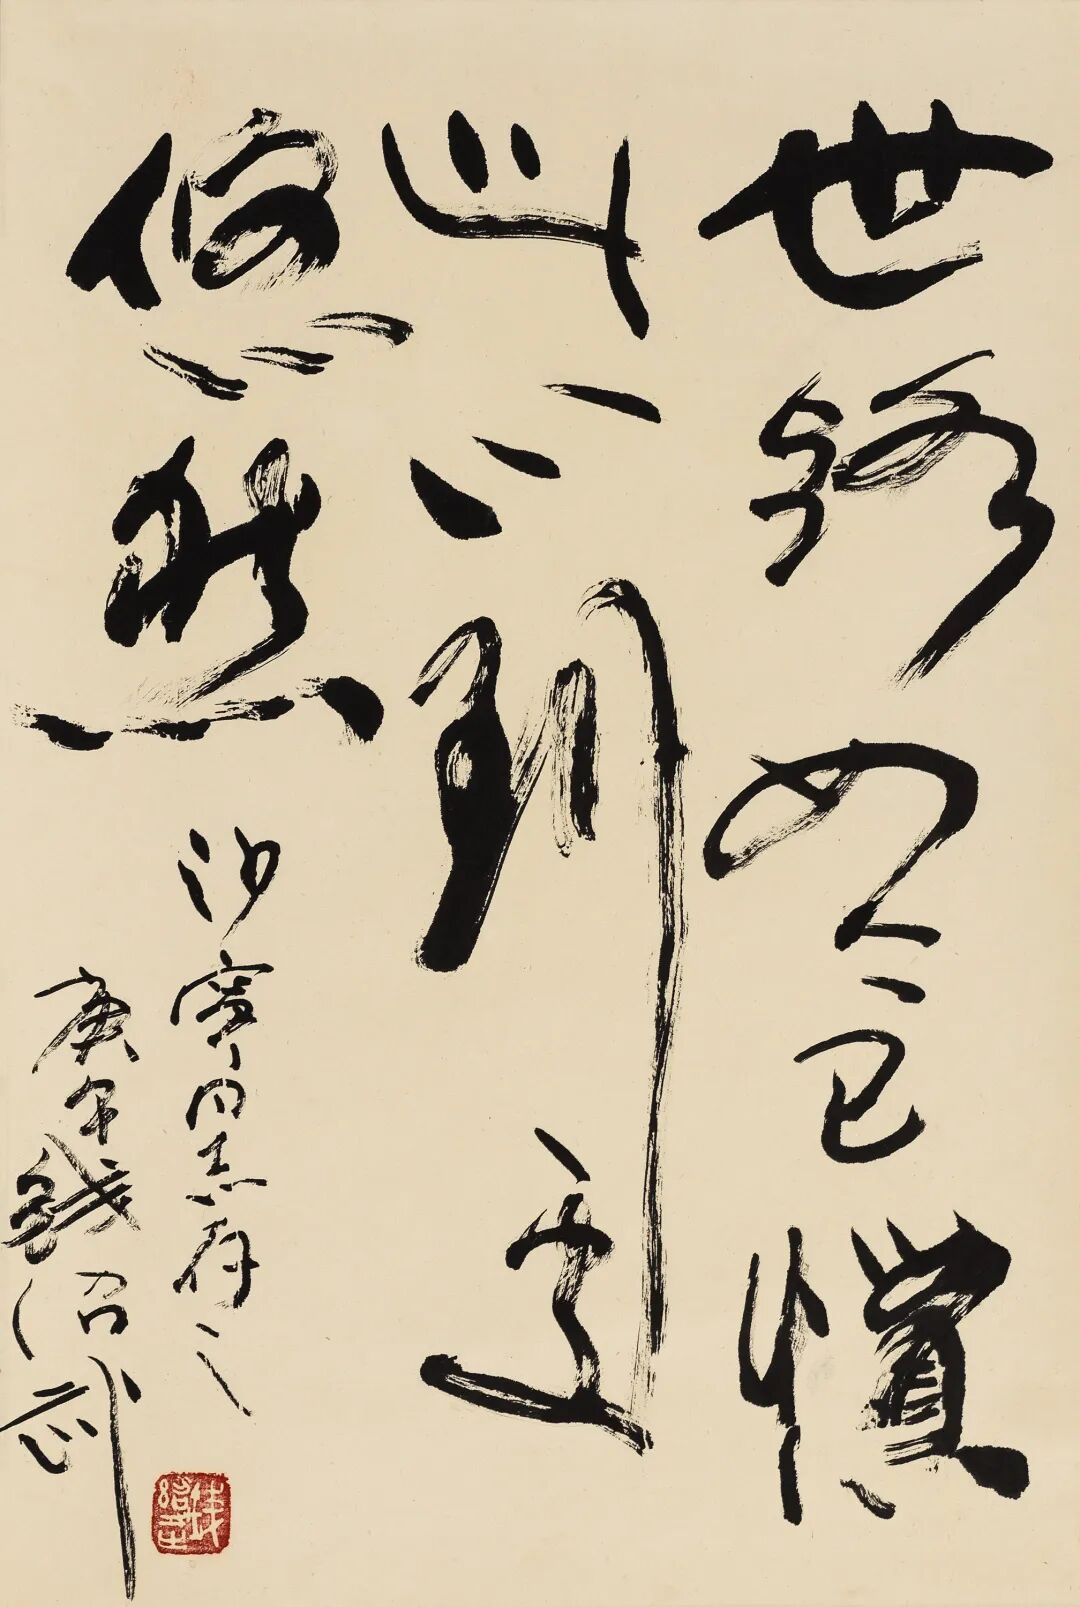 世路如今已慣
此心到處
悠然
沙寧同志存之
庚午錢紹武
錢紹武